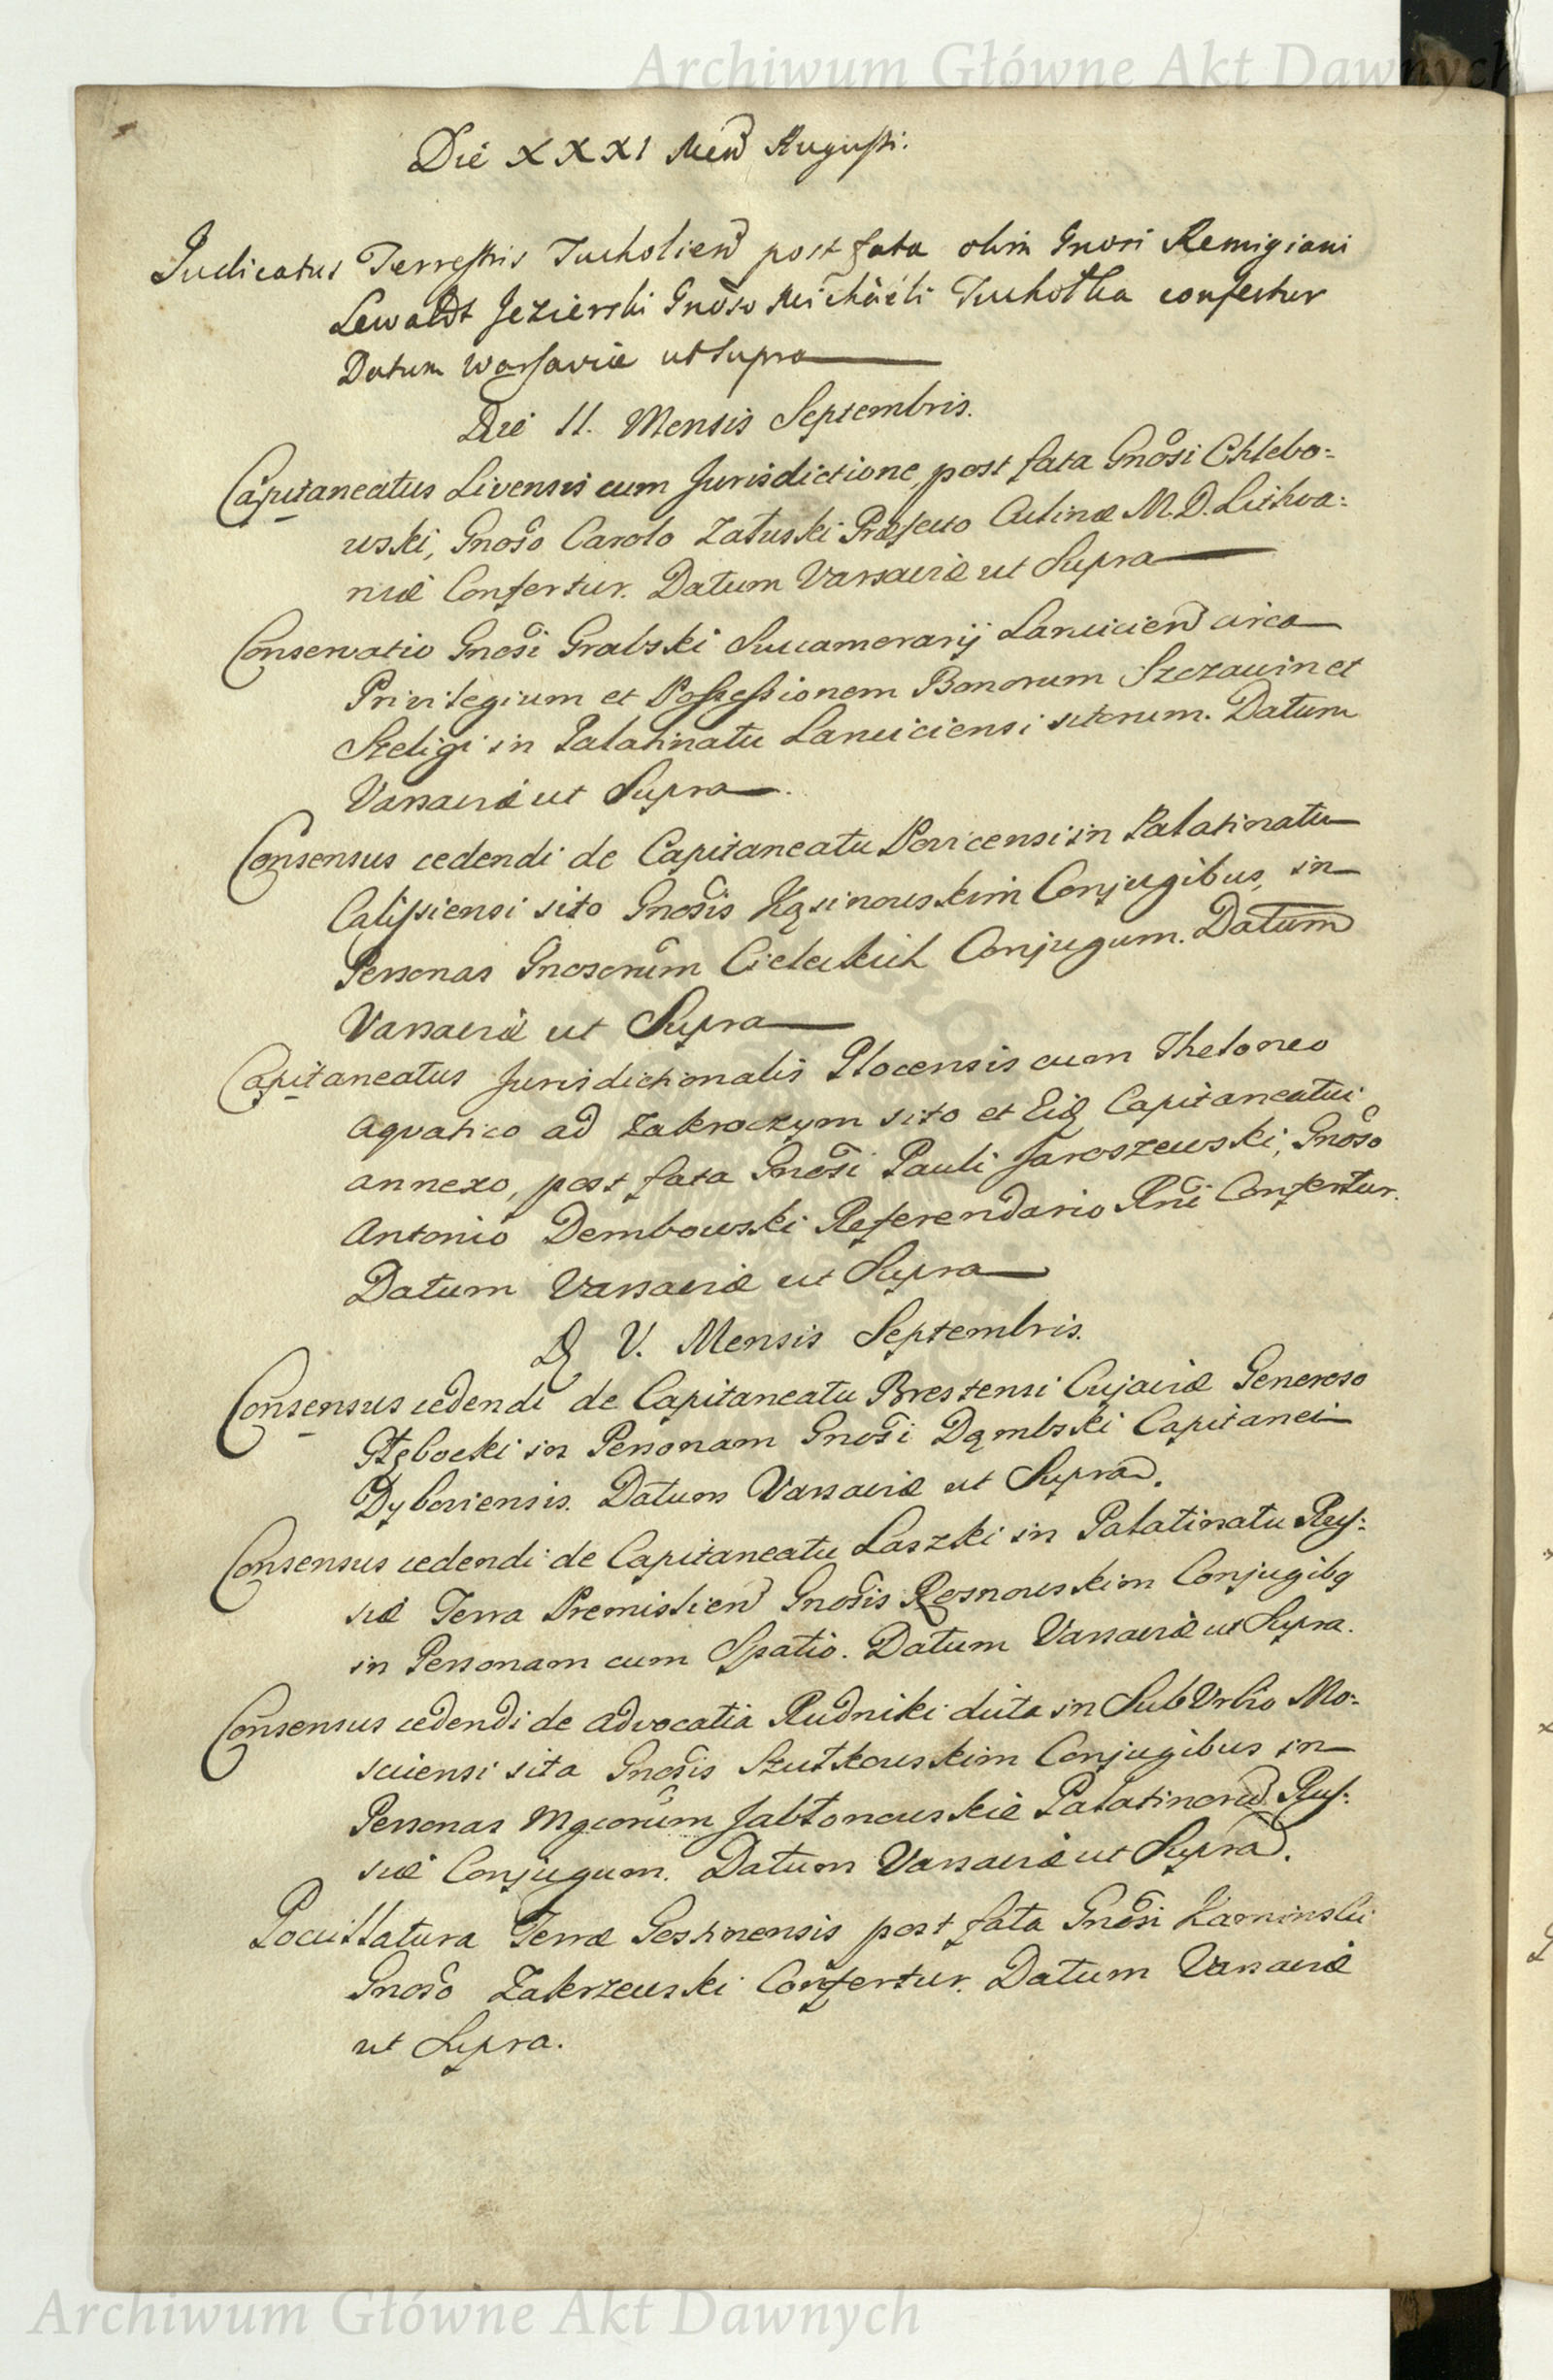 Archiwum Główne Akt Dawnych
Die XXXI Men̄ Augusti.
Judicatus Terrestris Tucholien̄ post fata olim Gnosi Remigiani
Lewaldt Jezierski Gnoso Michaeli Tuchołka confertur
Datum Warsaviæ ut supra
Die II. Mensis Septembris.
Capitaneatus Livensis cum Jurisdictione, post fata Gnosi Chlebo=
wski, Gnoso Carolo Załuski Præfecto Culinæ M.D. Lithva=
niæ Confertur. Datum Varsaviæ ut Supra
Conservatio Gnosi Grabski Succamerarij Lancicien̄ circa
Privilegium et Possessionem Bonorum Szczawin et
Szeligi in Palatinatu Lanciciensi sitorum. Datum
Varsaviæ ut Supra.
Consensus cedendi de Capitaneatu in Palatinatu
Calissiensi sito Gnosis Kąsinowskim Conjugibus, in
Personas Gnosorum Cieleckich Conjugum. Datum
Varsaviæ ut Supra
Capitaneatus Jurisdictionalis Plocensis cum Theloneo
aquatico ad Zakroczym sito et Eidē Capitaneatui
annexo, post fata Gnosi Pauli Jaroszewski, Gnoso
Antonio Dembowski Referendario Rni Confertur.
Datum Varsaviæ ut Supra
D V. Mensis Septembris.
Consensus cedendi de Capitaneatu Brestensi Cujaviæ Generoso
Głębocki in Personam Gnosi Dąmbski Capitanei
Dyboviensis. Datum Varsaviæ ut Supra.
Consensus cedendi de Capitaneatu Laszki in Palatinatu Rus=
siæ Terra Premislien̄ Gnosis Rosnowskim Conjugibq
in Personam cum Spatio. Datum Varsaviæ ut Supra.
Consensus cedendi de advocatia Rudniki dicta in SubUrbio Mo=
sciensi sita Gnosis Szutkowskim Conjugibus in
Personas Mgcorum Jabłonowskie Palatinorū Rus=
siæ Conjugum. Datum Varsaviæ ut Supra.
Pocillatura Terræ Gostinensis post fata Gnosi Kaminski
Gnoso Zakrzewski Confertur. Datum Varsaviæ
ut Supra.
Archiwum Główne Akt Dawnych